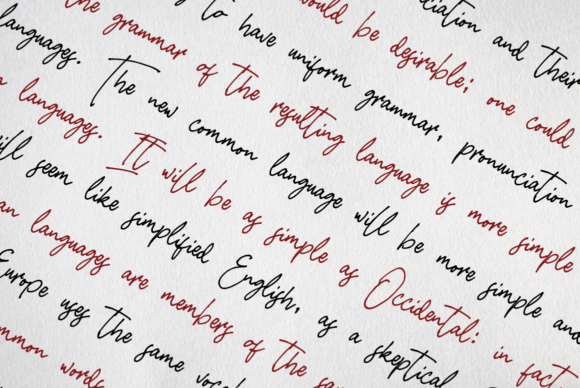 ciation and their
would be desirable; one could
to have uniform grammar, pronunciation
the grammar of the resulting language is more simple
languages. The new common language will be more simple and
languages. It will be as simple as Occidental: in fact
ill seem like simplified English, as a skeptical
an languages are members of the sa
Europe uses the same vocab
mmon words